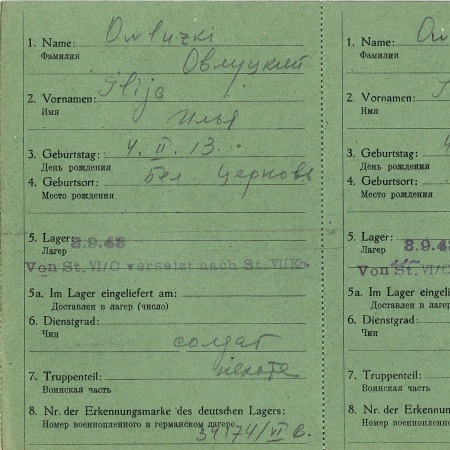 1. Name: Owluzki
Фамилия Овлуцкий
2. Vornamen: Ilija
Имя Илья
3. Geburtstag: 4. II. 13.
День рождения
4. Geburtsort: Бел. Церковь
Место рождения
5. Lager: 8.9.43
Лагер
Von St. VI/C versetzt nach St. VI/K
5a. Im Lager eingeliefert am:
Доставлен в лагер (число)
6. Dienstgrad:
Чин солдат
7. Truppenteil: пехота
Воинская часть
8. Nr. der Erkennungsmarke des deutschen Lagers:
Номер военнопленного в германском лагере 34174/VI B.
1. Name:
Фамилия
2. Vornamen:
Имя
3. Geburtstag:
День рождения
4. Geburtsort:
Место рождения
5. Lager: 8.9.43
Лагер
Von St. VI/C
5a. Im Lager eingeli
Доставлен в л
6. Dienstgrad:
Чин
7. Truppenteil:
Воинская часть
8. Nr. der Erkennun
Номер военнопле